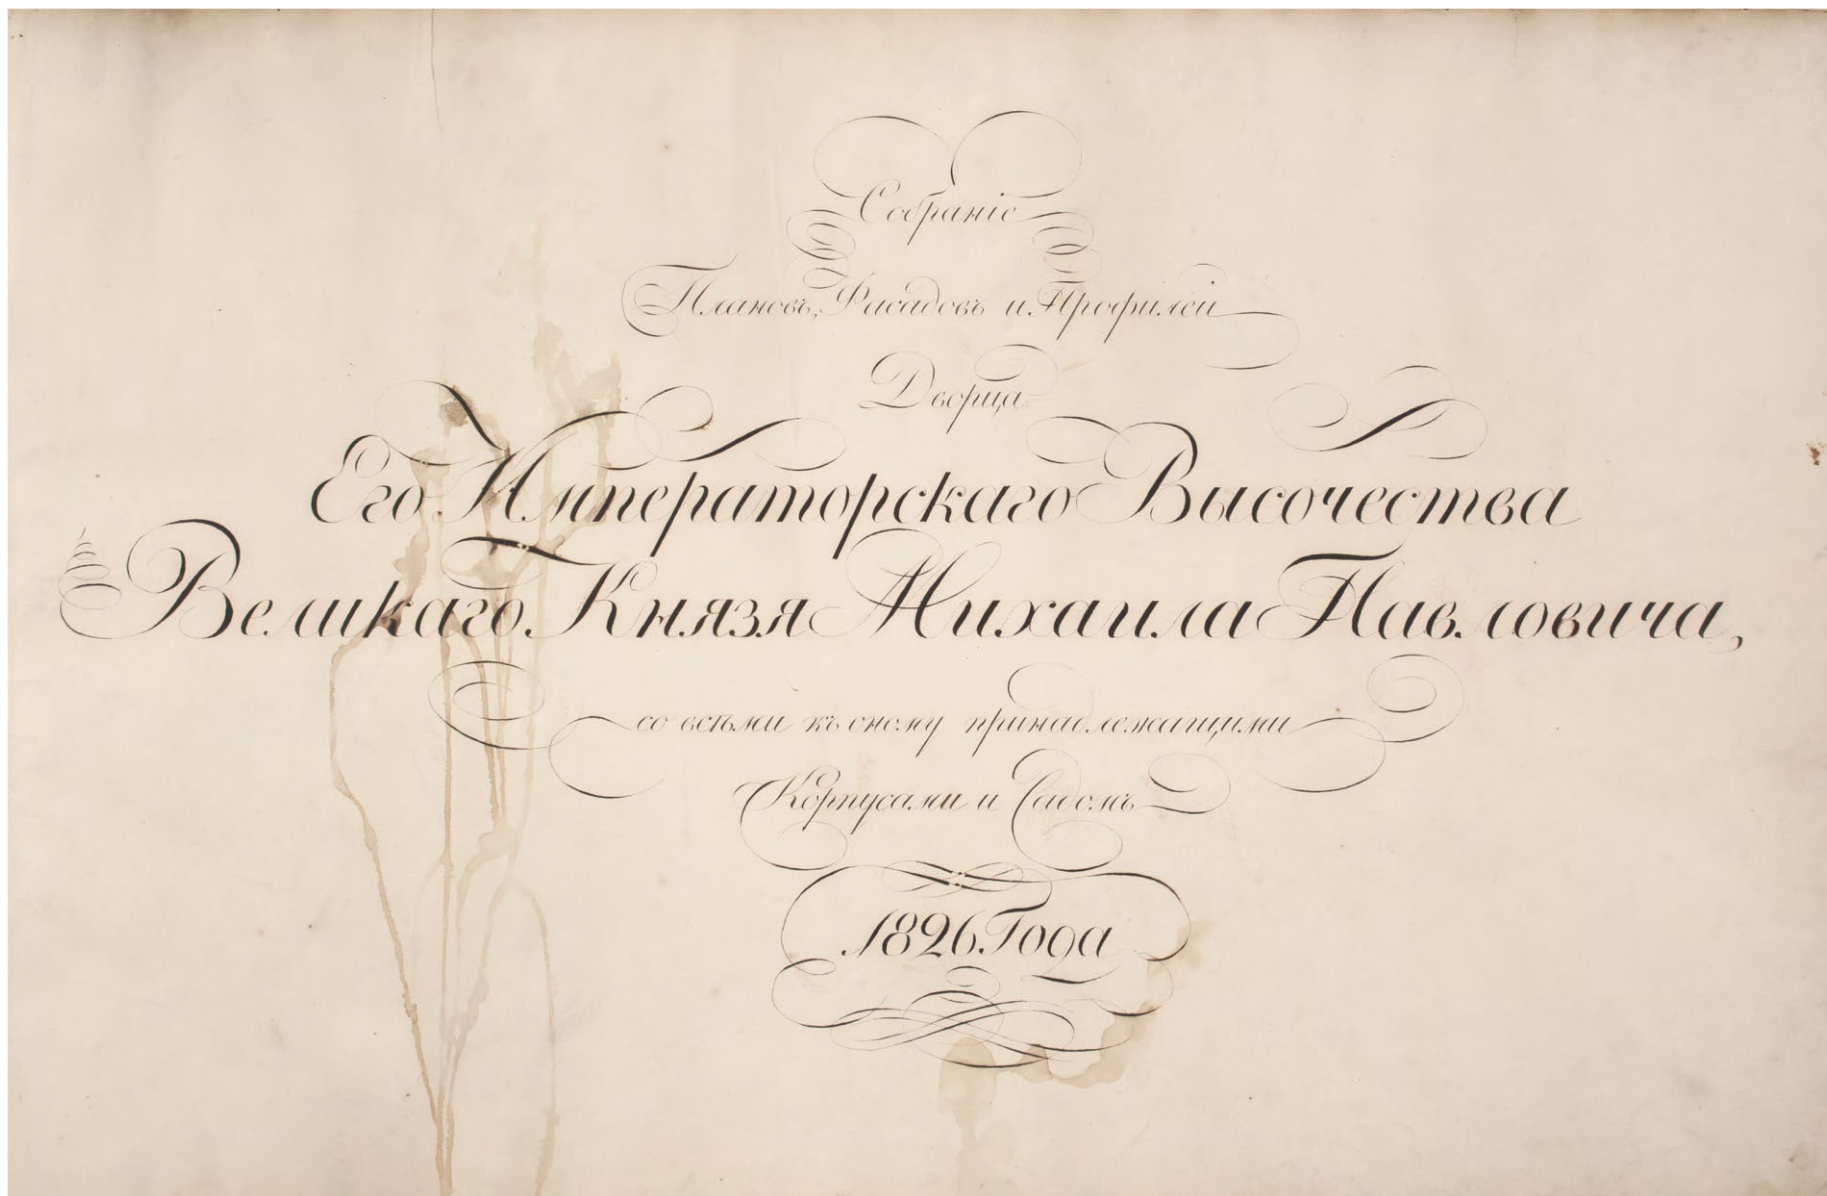 Собраніе
Плановъ, Фасадовъ и Профилей
Дворца
Его Императорскаго Высочества
Великаго Князя Михаила Павловича,
со всѣми къ оному принадлежащими
Корпусами и Садомъ
1826 Года